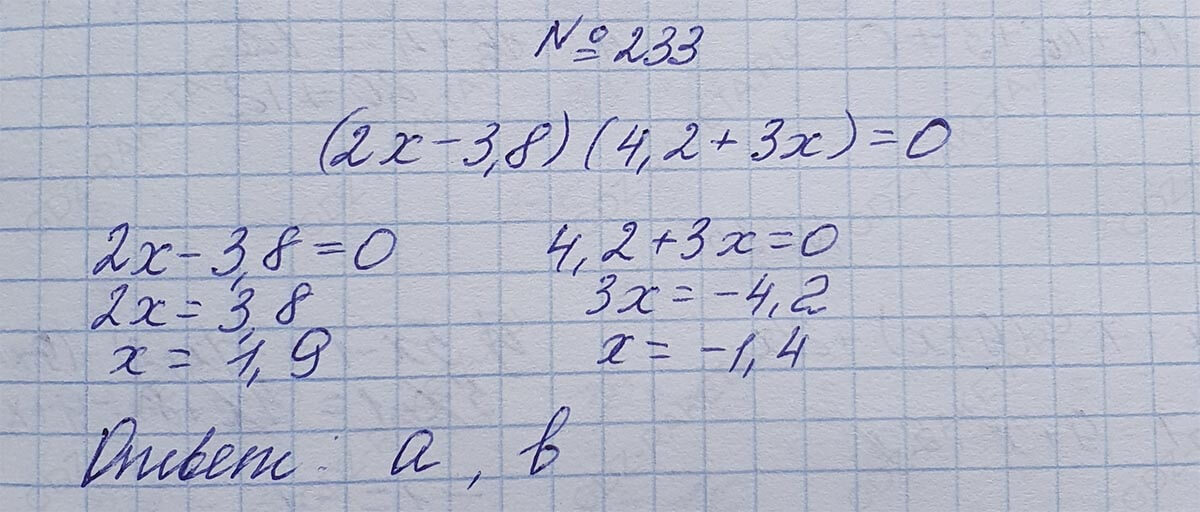 № 233
(2x - 3,8) (4,2 + 3x) = 0
2x - 3,8 = 0
2x = 3,8
x = 1,9
4,2 + 3x = 0
3x = -4,2
x = -1,4
Ответ: а, в